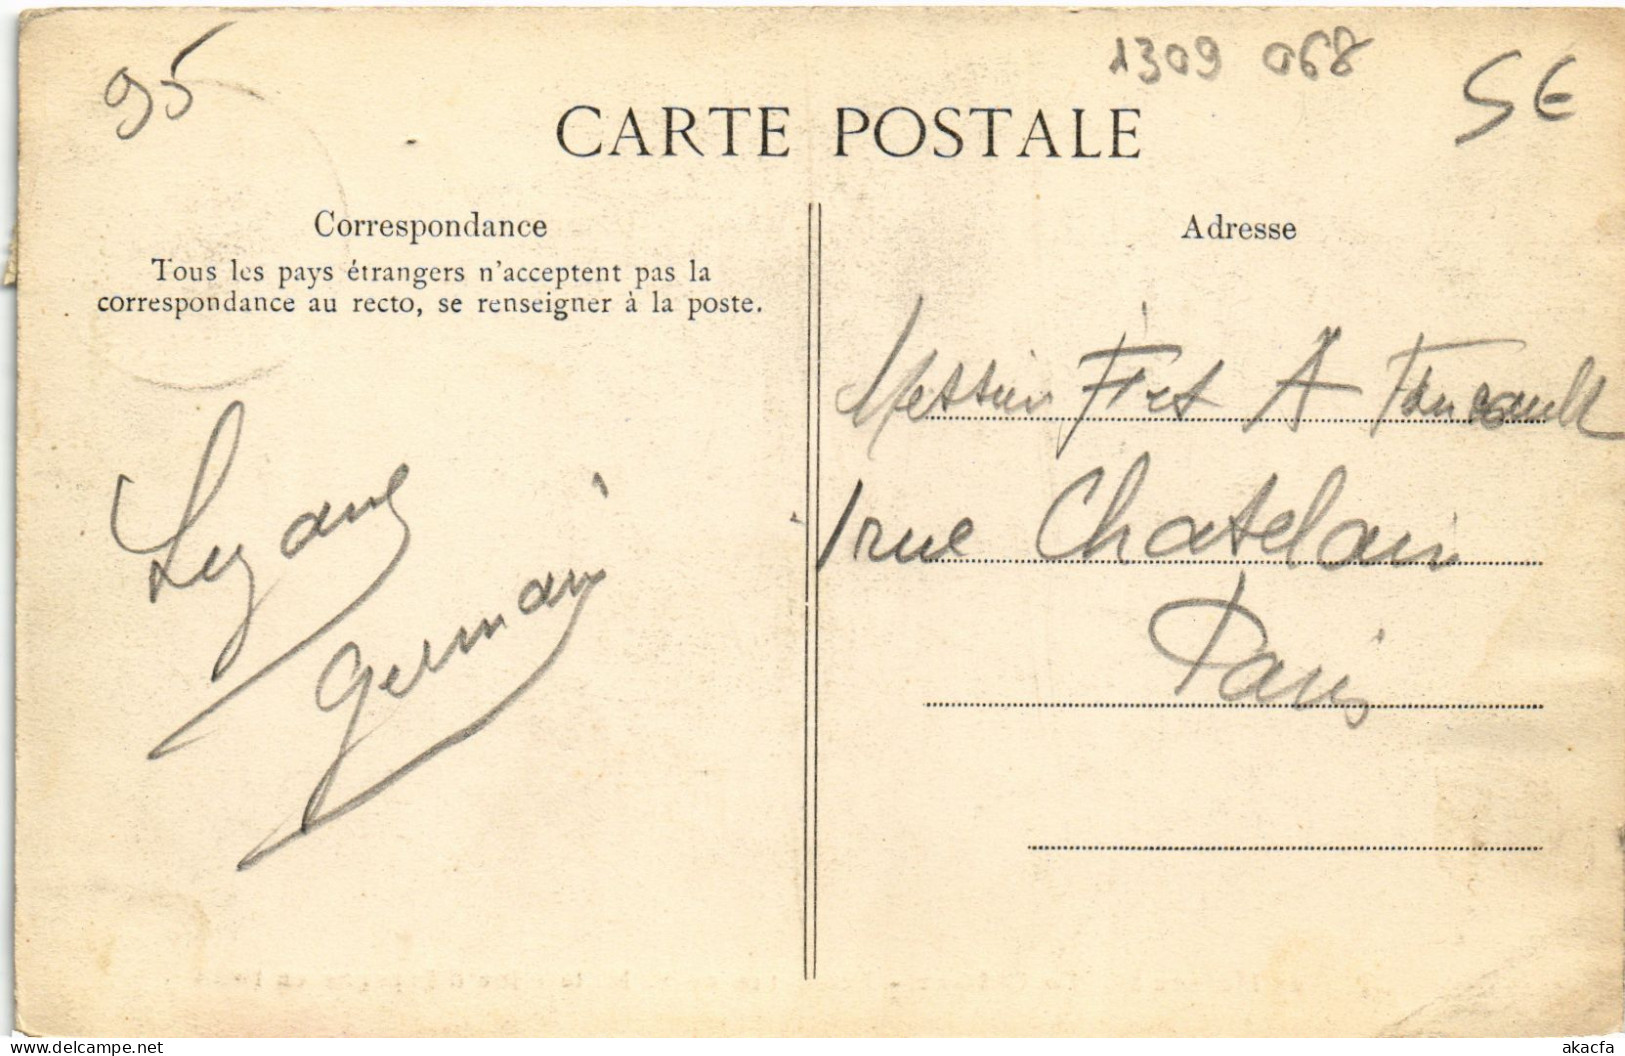 95
1309 068
5€
CARTE POSTALE
Correspondance
Tous les pays étrangers n'acceptent pas la
correspondance au recto, se renseigner à la poste.
Adresse
A Foucault
1 rue Chatelain
Paris
Germain
akacfa